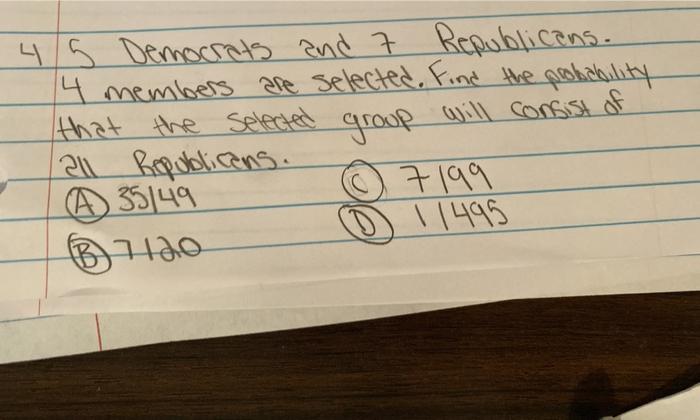 4 5 Democrats and 7 Republicans.
4 members are selected. Find the probability
that the selected group will consist of
all Republicans.
Ⓐ 35/49
Ⓑ 7/20
Ⓒ 7/99
Ⓓ 1/495